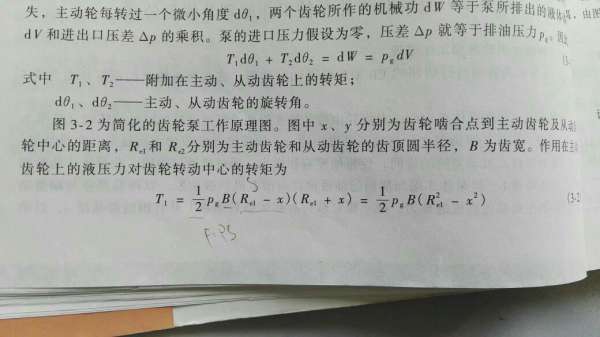 失，主动轮每转过一个微小角度 dθ₁，两个齿轮所作的机械功 dW 等于泵所排出的液体
dV 和进出口压差 Δp 的乘积。泵的进口压力假设为零，压差 Δp 就等于排油压力 p_g。
T₁dθ₁ + T₂dθ₂ = dW = p_g dV
式中 T₁、T₂——附加在主动、从动齿轮上的转矩；
dθ₁、dθ₂——主动、从动齿轮的旋转角。
图 3-2 为简化的齿轮泵工作原理图。图中 x、y 分别为齿轮啮合点到主动齿轮及从动
轮中心的距离，R_e1 和 R_e2 分别为主动齿轮和从动齿轮的齿顶圆半径，B 为齿宽。作用在主
齿轮上的液压力对齿轮转动中心的转矩为
S
T₁ = 1/2 p_g B(R_e1 − x)(R_e1 + x) = 1/2 p_g B(R²_e1 − x²) (3-2
F=PS